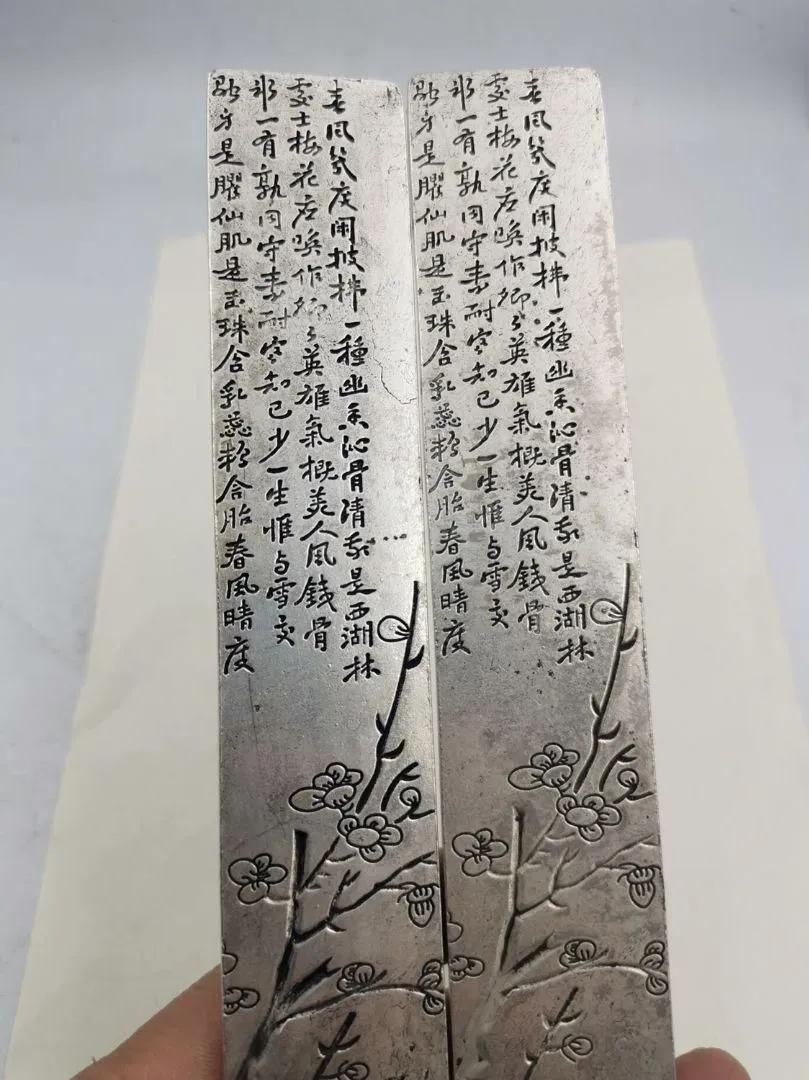 春风几度闲披拂一種幽香沁骨清我是西湖林
處士梅花应唤作卿々英雄氣概美人風鐵骨
那一有孰同守素耐寒知己少一生惟与雪交
是臞仙肌是玉珠含乳蕊含胎春風晴度
春风几度闲披拂一種幽香沁骨清我是西湖林
處士梅花应唤作卿々英雄氣概美人風鐵骨
那一有孰同守素耐寒知己少一生惟与雪交
是臞仙肌是玉珠含乳蕊含胎春風晴度